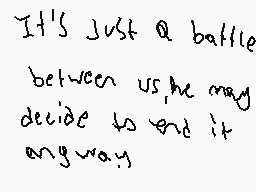 It's just a battle
between us, he may
decide to end it
anyway